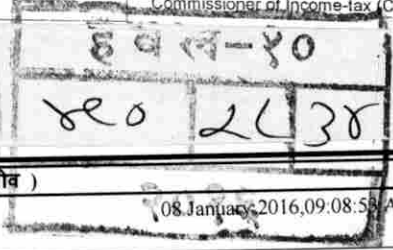 Commissioner of Income-tax (C
ह व ल-१०
४९० २८ ३४
ीव )
08 January,2016,09:08:53 A